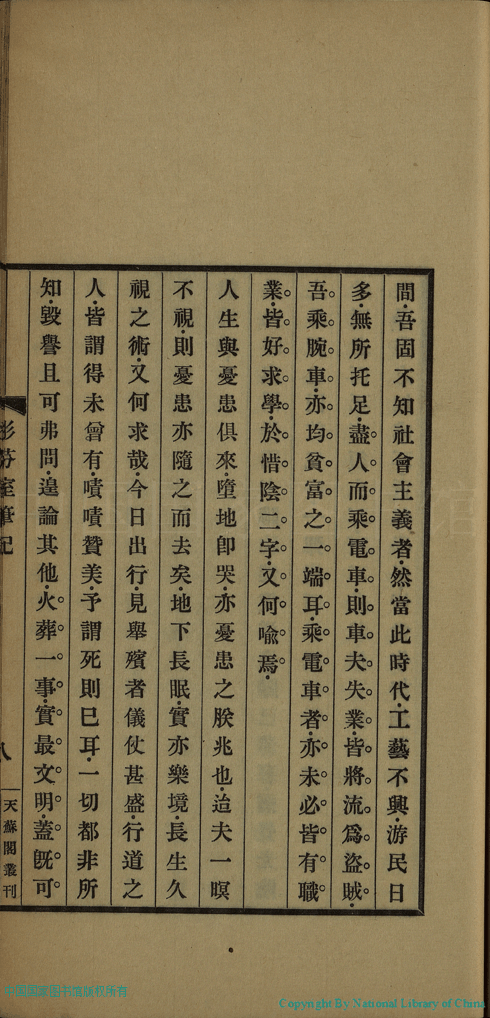 間·吾固不知社會主義者·然當此時代·工藝不興·游民日
多·無所托足·盡人而乘電車·則車夫失業·皆將流爲盜賊·
吾乘腕車·亦均貧富之一端耳·乘電車者·亦未必皆有職
業·皆好求學·於惜陰二字·又何喩焉·
人生與憂患俱來·墮地卽哭·亦憂患之朕兆也·迨夫一瞑
不視·則憂患亦隨之而去矣·地下長眠·實亦樂境·長生久
視之術·又何求哉·今日出行·見舉殯者儀仗甚盛·行道之
人·皆謂得未曾有·嘖嘖贊美·予謂死則已耳·一切都非所
知·毀譽且可弗問·遑論其他·火葬一事·實最文明·蓋旣可
芬室筆記
八
天蘇閣叢刊
中國國家圖書館版權所有
Copyright By National Library of China